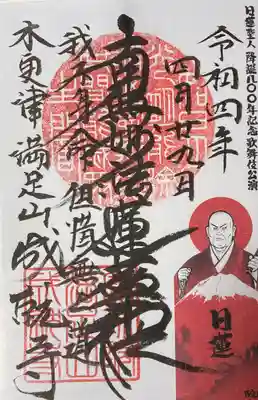 日蓮聖人 降誕八〇〇年記念歌舞伎公演
令和四年
四月廿九日
南無妙法蓮華経
我不愛身命但惜無上道
木更津 満足山 成就寺
日蓮